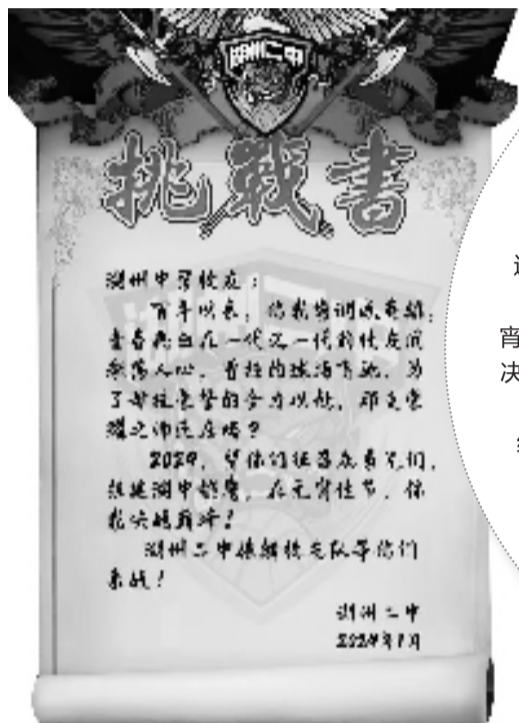 湖州二中
挑戰書
湖州中学校友：
百年以来，
青春热血在一代又一代的校友间
激荡人心，曾经的球场飞驰，为
了母校荣誉的全力以赴，那支荣
耀之师还在吗？
2024，望你们征召众勇儿们，
组建湖中，在元宵佳节，你
我决战巅峰！
湖州二中雄狮校友队等你们
来战！
湖州二中
2024年1月
宵
决